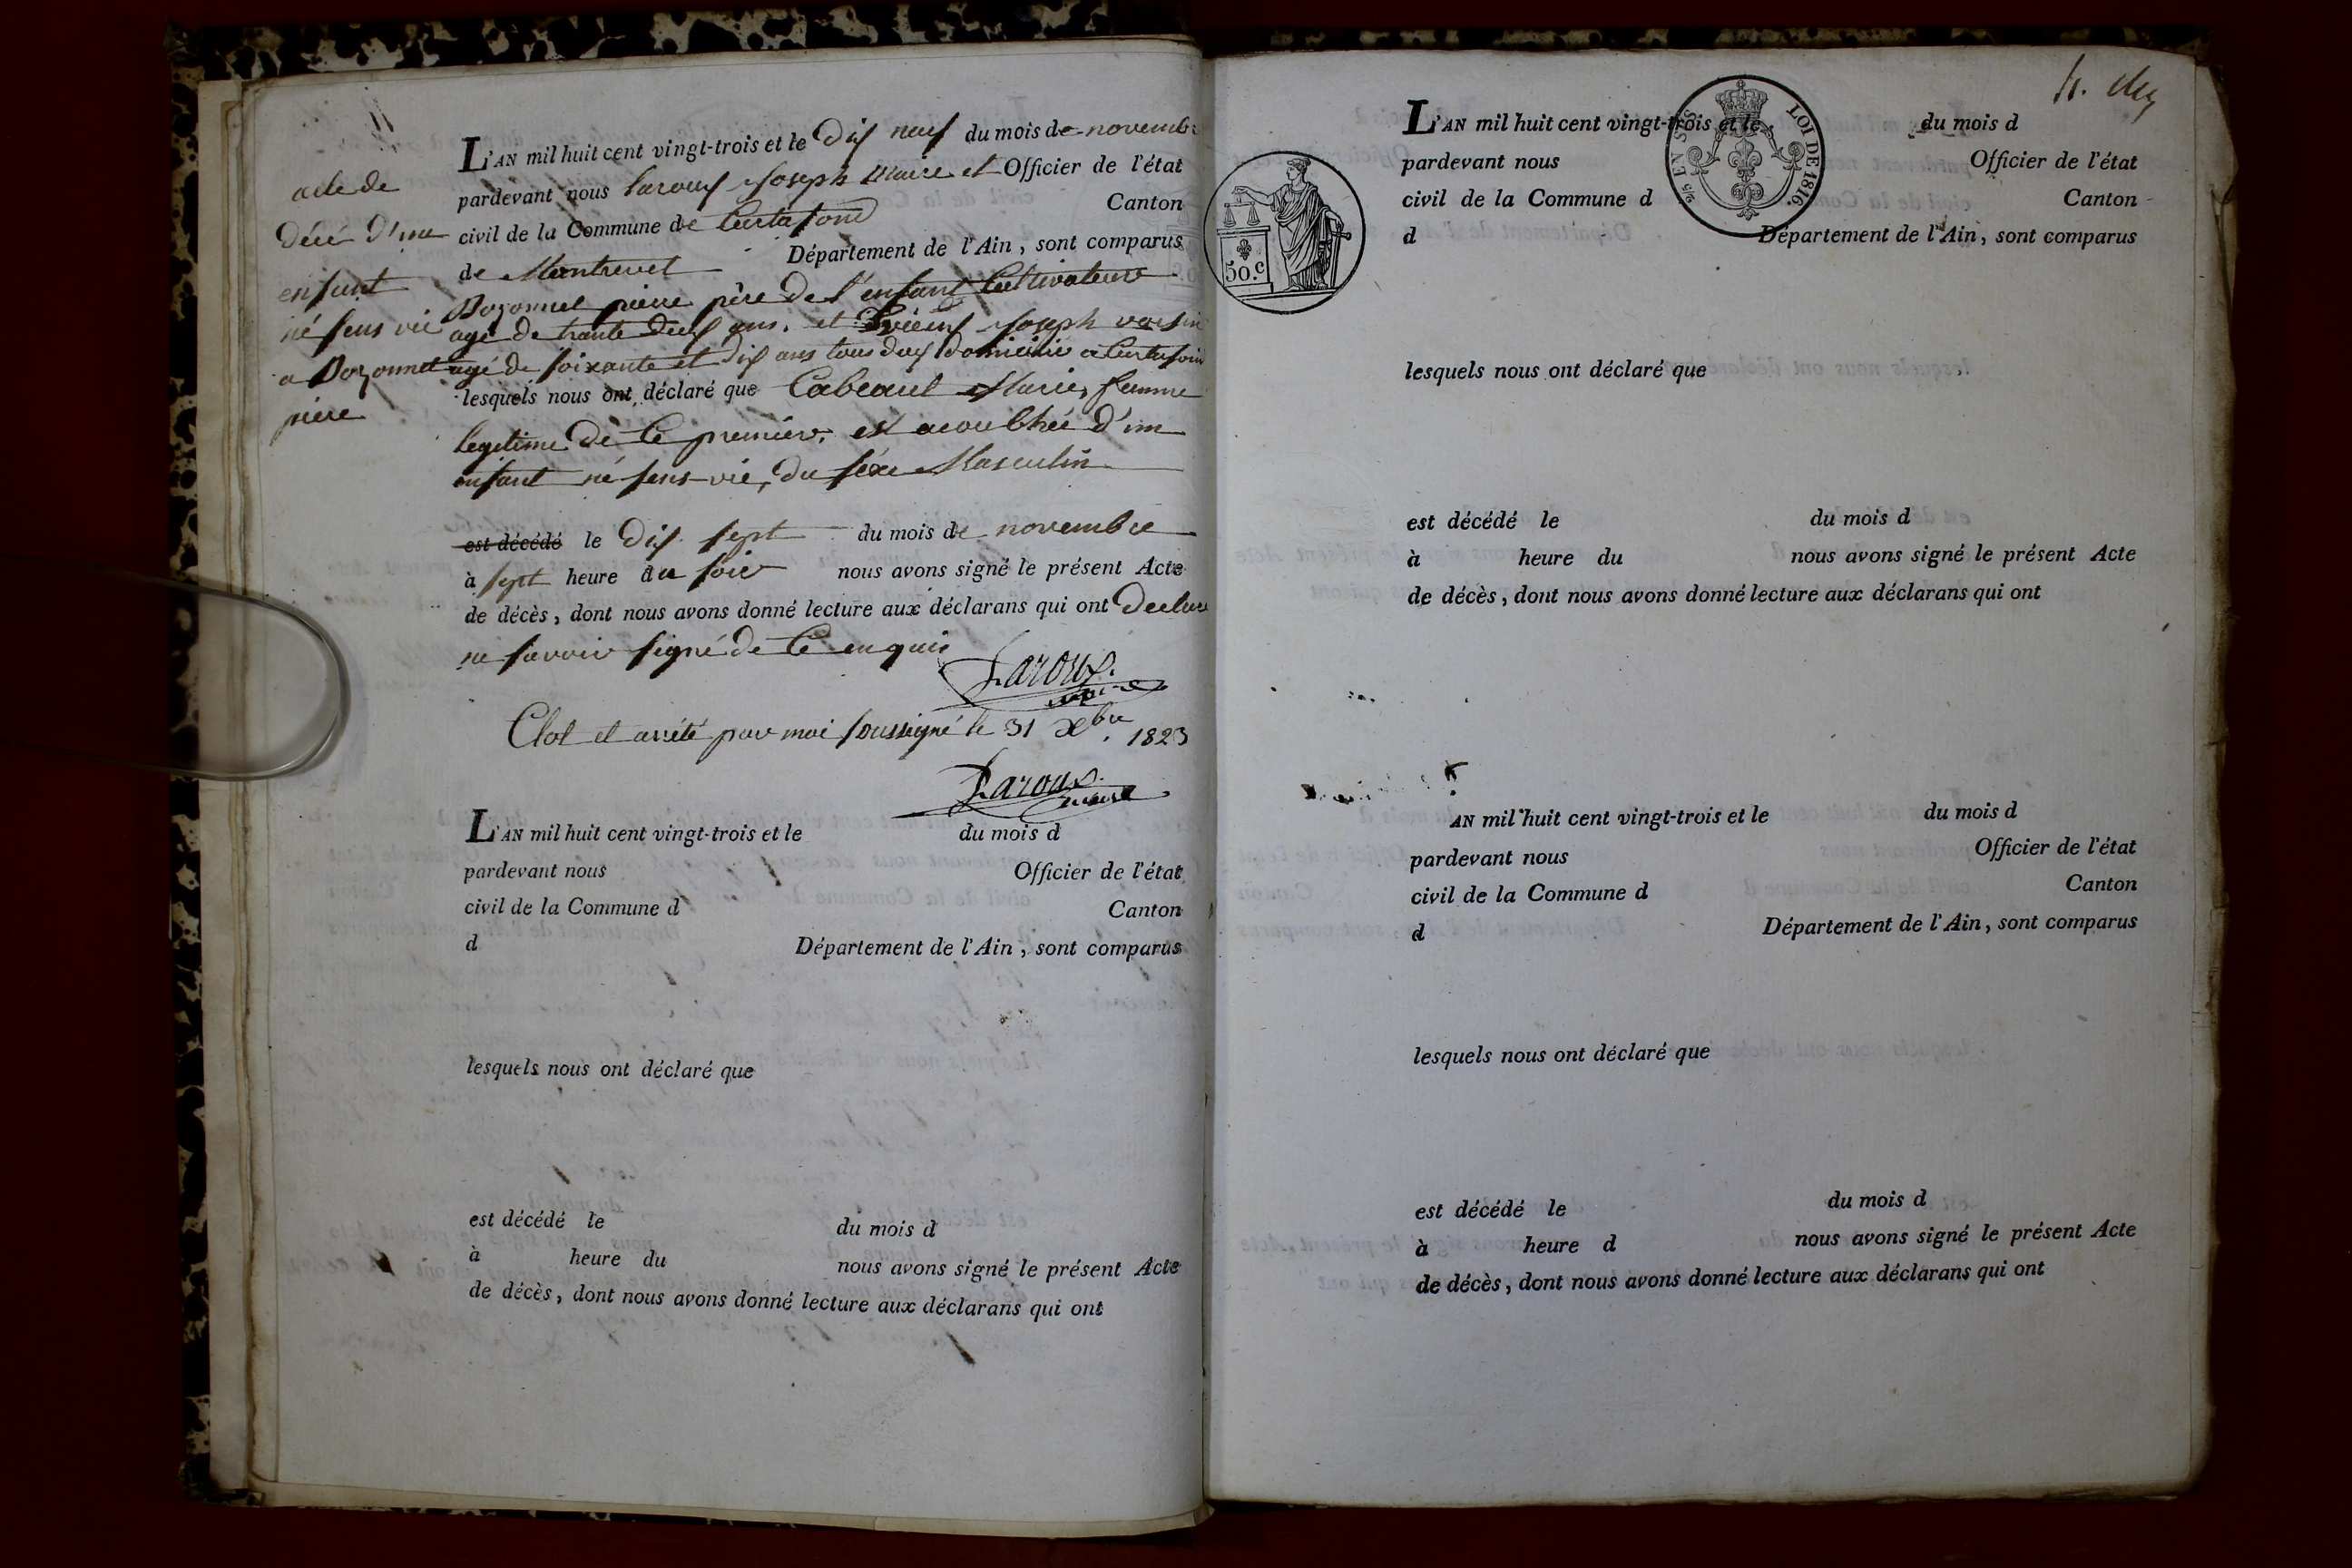 acte de
décé d'une
enfant
né sens vie
a Dozonnet
piere
L'AN mil huit cent vingt-trois et le Dix neuf du mois de novembre
pardevant nous Laroux Joseph Maire et Officier de l'état
civil de la Commune de Curtafond Canton
de Montrevel Département de l'Ain, sont comparus
Dozonnet pierre père de l'enfant Cultivateur
agé de trante deux ans. et Joseph voisin
agé de soixante et dix ans tous deux domicilié a Curtafond
lesquels nous ont déclaré que Cabeaut Marie, femme
legitime de Ce premier, est acoubhée d'un
enfant né sens vie, du séxe Masculin
est décédé le Dix sept du mois de novembre
à sept heure du soir nous avons signé le présent Acte
de décès, dont nous avons donné lecture aux déclarans qui ont
ne savoir signé de Ce enquis
Laroux
maire
Clot et arrêté par moi soussigné le 31 Xbre 1823
Laroux
maire
L'AN mil huit cent vingt-trois et le du mois d
pardevant nous Officier de l'état
civil de la Commune d Canton
d Département de l'Ain, sont comparus
lesquels nous ont déclaré que
est décédé le du mois d
à heure du nous avons signé le présent Acte
de décès, dont nous avons donné lecture aux déclarans qui ont
50.c
LOI DE 1816.
L'AN mil huit cent vingt-trois et le du mois d
pardevant nous Officier de l'état
civil de la Commune d Canton
d Département de l'Ain, sont comparus
lesquels nous ont déclaré que
est décédé le du mois d
à heure du nous avons signé le présent Acte
de décès, dont nous avons donné lecture aux déclarans qui ont
AN mil huit cent vingt-trois et le du mois d
pardevant nous Officier de l'état
civil de la Commune d Canton
d Département de l'Ain, sont comparus
lesquels nous ont déclaré que
est décédé le du mois d
à heure d nous avons signé le présent Acte
de décès, dont nous avons donné lecture aux déclarans qui ont